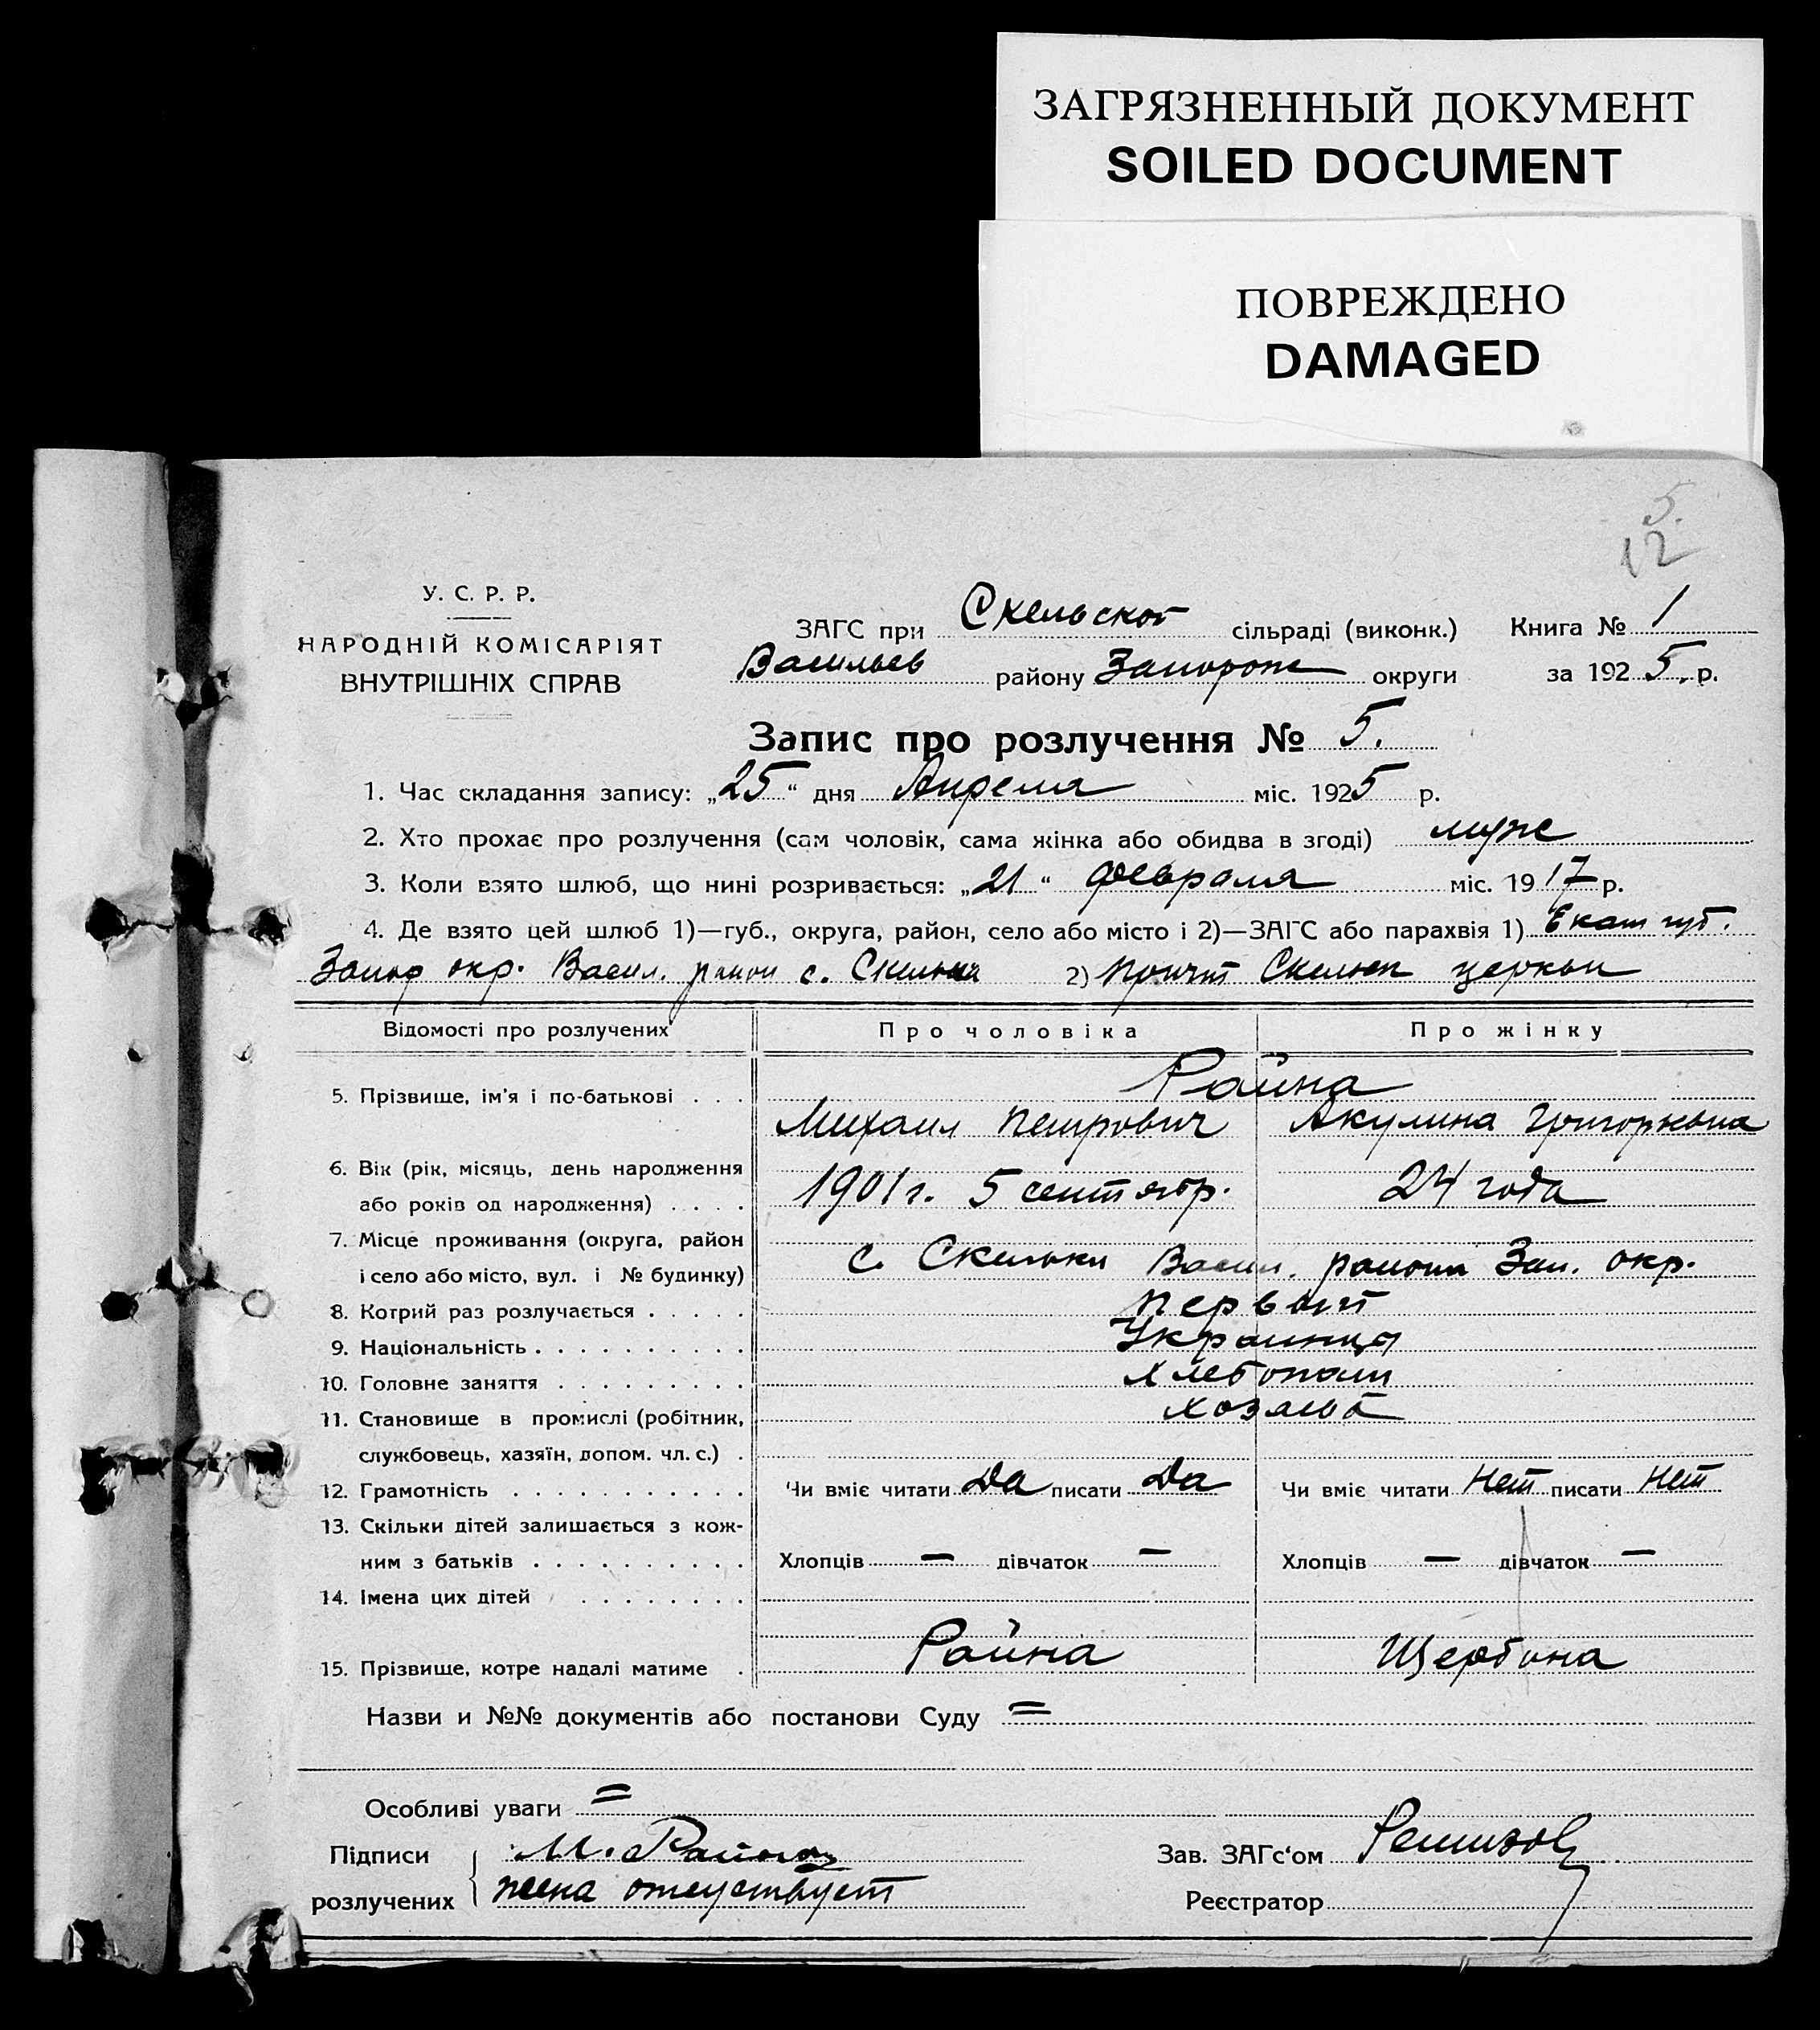 ЗАГРЯЗНЕННЫЙ ДОКУМЕНТ
SOILED DOCUMENT
ПОВРЕЖДЕНО
DAMAGED
5.
12
У. С. Р. Р.
НАРОДНІЙ КОМІСАРІЯТ
ВНУТРІШНІХ СПРАВ
ЗАГС при Скельской сільраді (виконк.) Книга № 1
Васильев району Запорож округи за 1925. р.
Запис про розлучення № 5.
1. Час складання запису: „25“ дня Апреля міс. 1925 р.
2. Хто прохає про розлучення (сам чоловік, сама жінка або обидва в згоді) муж
3. Коли взято шлюб, що нині розривається: „21“ февраля міс. 1917 р.
4. Де взято цей шлюб 1)—губ., округа, район, село або місто і 2)—ЗАГС або парахвія 1) Екат губ.
Запор окр. Васил. район с. Скельки 2) причт Скельск церкви
Відомості про розлучених Про чоловіка Про жінку
5. Прізвище, ім'я і по-батькові . . . Райна
Михаил Петрович Акулина Григорьевна
6. Вік (рік, місяць, день народження
або років од народження) . . . . 1901 г. 5 сентябр. 24 года
7. Місце проживання (округа, район
і село або місто, вул. і № будинку) с. Скельки Васил. района Зап. окр.
8. Котрий раз розлучається . . . . . первый
9. Національність . . . . . . . . . . Украинцы
10. Головне заняття . . . . . . . . . хлебопаш
11. Становище в промислі (робітник, хозяева
службовець, хазяїн, допом. чл. с.) .
12. Грамотність . . . . . . . . . . . Чи вміє читати Да писати Да Чи вміє читати Нет писати Нет
13. Скільки дітей залишається з кож-
ним з батьків . . . . . . . . . . Хлопців — дівчаток — Хлопців — дівчаток —
14. Імена цих дітей . . . . . . . .
15. Прізвище, котре надалі матиме . Райна Щербина
Назви и №№ документів або постанови Суду =
Особливі уваги =
Підписи М. Райна Зав. ЗАГс'ом Ремизов
розлучених жена отсуствует Реєстратор